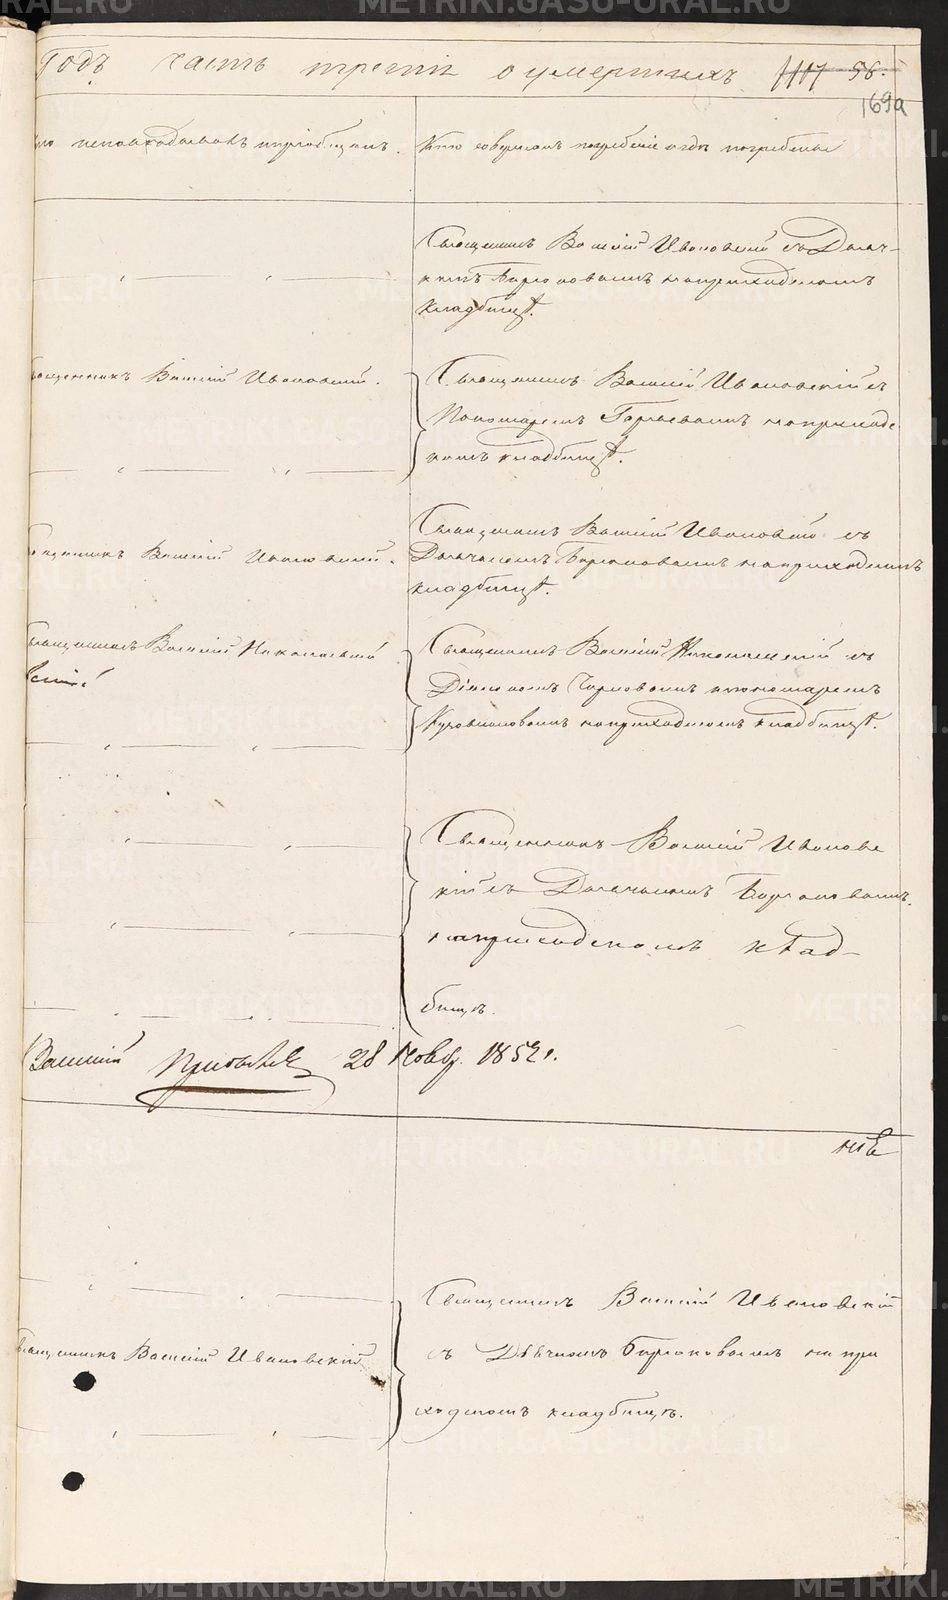 Годъ часть третія о умершихъ 56.
169а
исповѣдывалъ и пріобщалъ.
Кто совершалъ погребеніе и гдѣ погребены
Священникъ Василій Ивановскій съ Дьяч-
комъ на приходскомъ
кладбищѣ.
Священникъ Василій Ивановскій.
Священникъ Василій Ивановскій съ
Пономаремъ на приход
комъ кладбищѣ.
Священникъ Василій Ивановскій съ
Священникъ Василій Ивановскій.
Дьячкомъ на приходскомъ
кладбищѣ.
Священникъ Василій Николаевскій
Священникъ Василій Николаевскій съ
Діакономъ и пономаремъ
на приходскомъ кладбищѣ.
Священникъ Василій Ивановс
кій съ Дьячкомъ
на приходскомъ клад-
бищѣ.
Василій 28 Ноябр. 1852 г.
Священникъ Василій Ивановскій
Священникъ Василій Ивановскій
съ Дьячкомъ на при
ходскомъ кладбищѣ.
METRIKI.GASU-URAL.RU